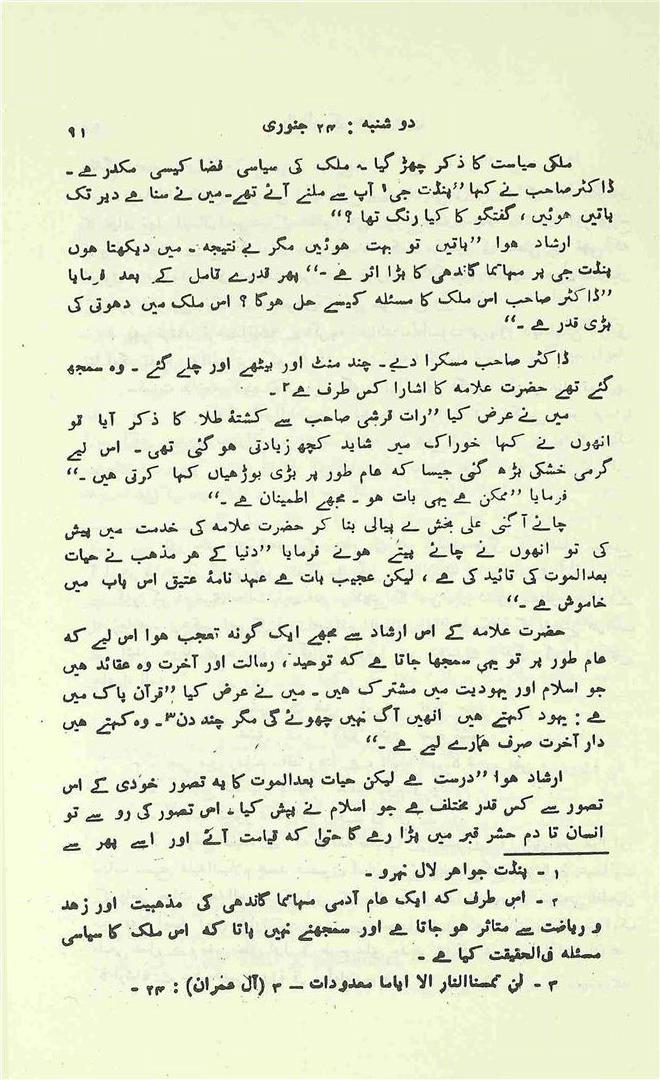 دو شنبہ : ۲۴ جنوری ۹۱
ملکی سیاست کا ذکر چھڑ گیا ۔ ملک کی سیاسی فضا کیسی مکدر ہے ۔
ڈاکٹر صاحب نے کہا ”پنڈت جی۱ آپ سے ملنے آئے تھے ۔ میں نے سنا ہے دیر تک
باتیں ہوئیں ، گفتگو کا کیا رنگ تھا ؟“
ارشاد ہوا ”باتیں تو بہت ہوئیں مگر بے نتیجہ ۔ میں دیکھتا ہوں
پنڈت جی پر مہاتما گاندھی کا بڑا اثر ہے ۔“ پھر قدرے تامل کے بعد فرمایا
”ڈاکٹر صاحب اس ملک کا مسئلہ کیسے حل ہوگا ؟ اس ملک میں دھوتی کی
بڑی قدر ہے ۔“
ڈاکٹر صاحب مسکرا دیے ۔ چند منٹ اور بیٹھے اور چلے گئے ۔ وہ سمجھ
گئے تھے حضرت علامہ کا اشارا کس طرف ہے۲ ۔
میں نے عرض کیا ”رات قرشی صاحب سے کشتۂ طلا کا ذکر آیا تو
انھوں نے کہا خوراک میں شاید کچھ زیادتی ہو گئی تھی ۔ اس لیے
گرمی خشکی بڑھ گئی جیسا کہ عام طور پر بڑی بوڑھیاں کہا کرتی ہیں ۔“
فرمایا ”ممکن ہے یہی بات ہو ۔ مجھے اطمینان ہے ۔“
چائے آ گئی علی بخش نے پیالی بنا کر حضرت علامہ کی خدمت میں پیش
کی تو انھوں نے چائے پیتے ہوئے فرمایا ”دنیا کے ہر مذہب نے حیات
بعدالموت کی تائید کی ہے ، لیکن عجیب بات ہے عہد نامۂ عتیق اس باب میں
خاموش ہے ۔“
حضرت علامہ کے اس ارشاد سے مجھے ایک گونہ تعجب ہوا اس لیے کہ
عام طور پر تو یہی سمجھا جاتا ہے کہ توحید ، رسالت اور آخرت وہ عقائد ہیں
جو اسلام اور یہودیت میں مشترک ہیں ۔ میں نے عرض کیا ”قرآن پاک میں
ہے : یہود کہتے ہیں انھیں آگ نہیں چھوئے گی مگر چند دن۳ ۔ وہ کہتے ہیں
دار آخرت صرف ہمارے لیے ہے ۔“
ارشاد ہوا ”درست ہے لیکن حیات بعدالموت کا یہ تصور خودی کے اس
تصور سے کس قدر مختلف ہے جو اسلام نے پیش کیا ۔ اس تصور کی رو سے تو
انسان تا دم حشر قبر میں پڑا رہے گا حتیٰ کہ قیامت آئے اور اسے پھر سے
۱ ۔ پنڈت جواہر لال نہرو ۔
۲ ۔ اس طرف کہ ایک عام آدمی مہاتما گاندھی کی مذہبیت اور زہد
و ریاضت سے متاثر ہو جاتا ہے اور سمجھنے نہیں پاتا کہ اس ملک کا سیاسی
مسئلہ فی الحقیقت کیا ہے ۔
۳ ۔ لن تمسنا النار الا ایاما معدودات ــ ۳ (آل عمران) : ۲۴ ۔